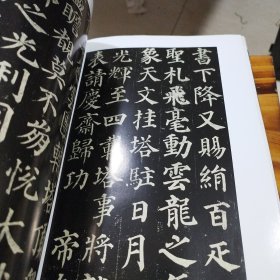 書下降又賜絹百疋
聖札飛毫動雲龍之
象天文挂塔駐日月
光輝至四載塔事將
表請慶齋歸功 帝
莫不
悅大
之光利同